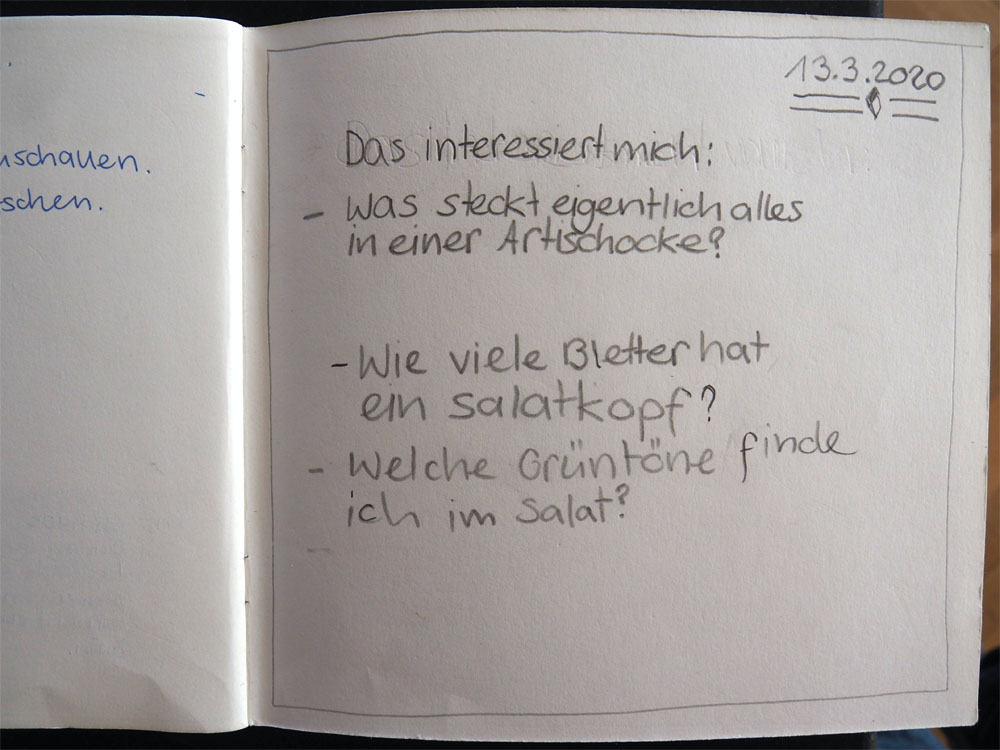 schauen.
schen.
13.3.2020
Das interessiert mich:
- Was steckt eigentlich alles
in einer Artischocke?
- Wie viele Bletter hat
ein Salatkopf?
- Welche Grüntöne finde
ich im Salat?
-